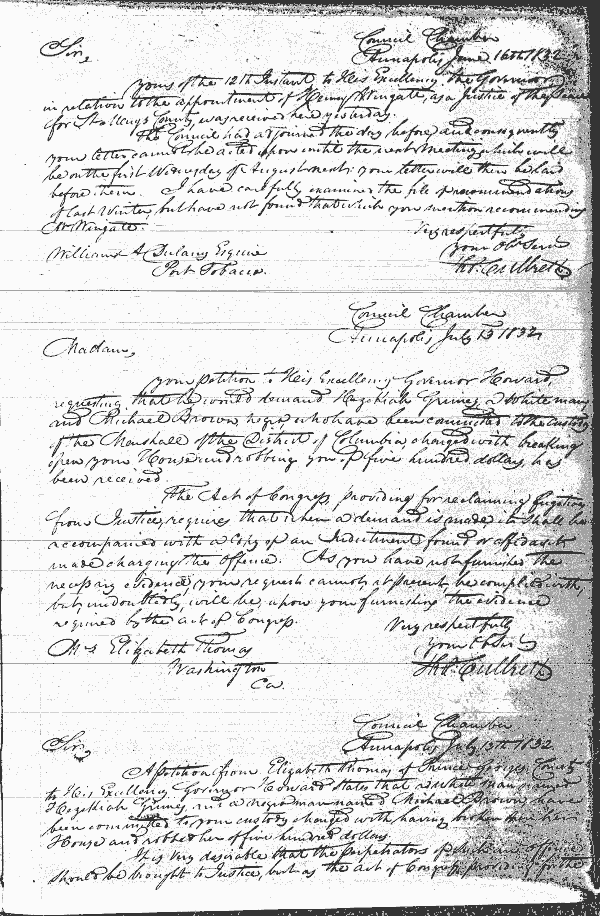 Council Chamber
Sir, Annapolis, June 16th 1832
yours of the 12th Instant to His Excellency the Governor
in relation to the appointment of Henry Wingate, as a Justice of the Peace
for County, was received here yesterday.
The Council had adjourned the day before, and consequently
your letter cannot be acted upon until the next meeting which will
be on the first Wednesday of August next; your letter will then be laid
before them. I have carefully examined the file of recommendations
of last Winter, but have not found that which you mention recommending
Mr Wingate.
Very respectfully
your Obt Servt
William A Dulany Esquire
Port Tobacco.
Thos. Culbreth
Council Chamber
Annapolis, July 13 1832
Madam,
your petition to His Excellency Governor Howard,
requesting that he would demand Hezekiah Grimes, a white man
and Michael Brown, negro, who have been committed to the custody
of the Marshall of the District of Columbia, charged with breaking
open your House and robbing you of five hundred dollars, has
been received.
The Act of Congress, providing for reclaiming fugitives
from Justice, requires that when a demand is made it shall be
accompanied with a Copy of an Indictment found or affidavit
made charging the offence. As you have not furnished the
necessary evidence, your request cannot, at present, be complied with,
but, undoubtedly, will be, upon your furnishing the evidence
required by the act of Congress.
Very respectfully
your Obt Servt
Mrs Elizabeth Thomas
Washington
Co.
Thos. Culbreth
Council Chamber
Annapolis, July 13th 1832
Sir,
A petition from Elizabeth Thomas of Prince Georges County
to His Excellency Governor Howard states that a white man named
Hezekiah Grimes, and a negro man named Michael Brown have
been committed to your custody charged with having broken open her
House and robbed her of five hundred dollars.
It is very desirable that the perpetrators of such an offence
should be brought to Justice, but as the act of Congress, providing for the